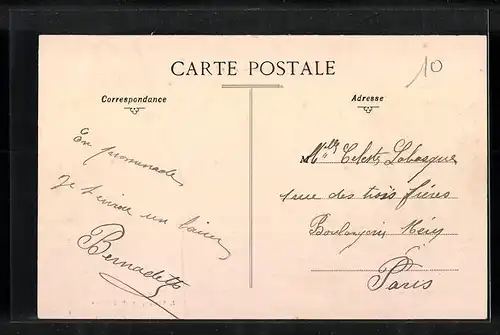 CARTE POSTALE
10
Correspondance
Adresse
En promenade
Je t'envoie un baiser
Bernadette
Mlle Celeste Labasque
1 rue des trois frères
Boulangerie
Paris